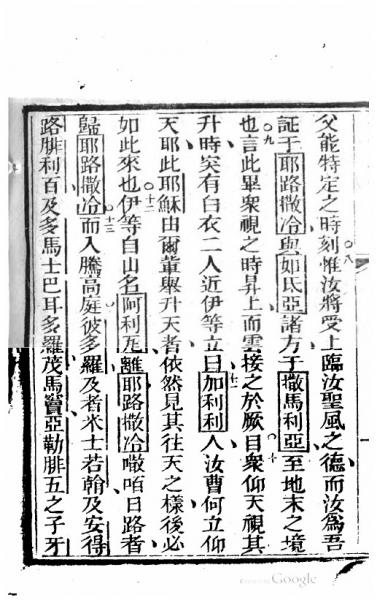 父能特定之時刻○八惟汝將受上臨汝聖風之德而汝為吾
証于耶路撒冷與如氐亞諸方于撒馬利亞至地末之境
也○九言此畢眾視之時昇上而雲接之於厥目○十眾仰天視其
升時突有白衣二人近伊等立○十一曰加利利人汝曹何立仰
天耶此耶穌由爾輩舉升天者依然見其往天之樣後必
如此來也○十二伊等自山名阿利瓦離耶路撒冷咟日路者
歸耶路撒冷○十三而入騰高庭彼多羅及者米士若翰及安得
路腓利百及多馬士巴耳多羅茂馬竇亞勒腓五之子牙
Google